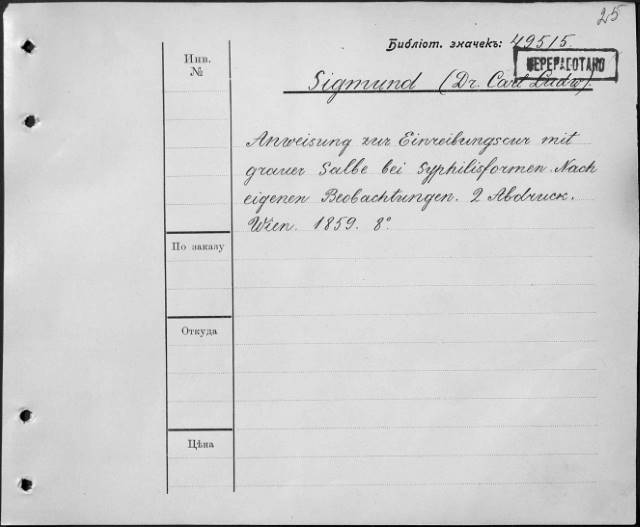 25
Библіот. значекъ: 49515.
ПЕРЕРАБОТАНО
Инв.
№
Sigmund (Dr. Carl Ludw).
Anweisung zur Einreibungscur mit
grauer Salbe bei Syphilisformen. Nach
eigenen Beobachtungen. 2 Abdruck.
Wien. 1859. 8°.
По заказу
Откуда
Цѣна